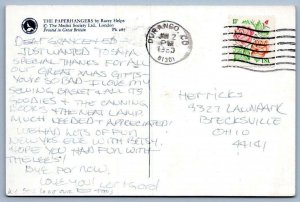 THE PAPERHANGERS by Racey Helps
© The Medici Society Ltd., London
Printed in Great Britain
Pk 287
DURANGO CO
JAN 2
PM
81301
USA
DEAR
JUST WANTED TO SAY A
SPECIAL THANKS FOR ALL
OUR GREAT XMAS GIFTS
I LOVE MY
SEWING BASKET W/ALL ITS
GOODIES & THE CANNING
BOOK & THE NEAT LAMP
MUCH NEEDED & APPRECIATED!
WE HAD LOTS OF FUN
NEW YRS EVE WITH BETSY.
HOPE YOU HAD FUN WITH
THE LEES!
BYE FOR NOW,
LOVE YOU!
HERRICKS
9327 LAWNPARK
BRECKSVILLE
OHIO
44141